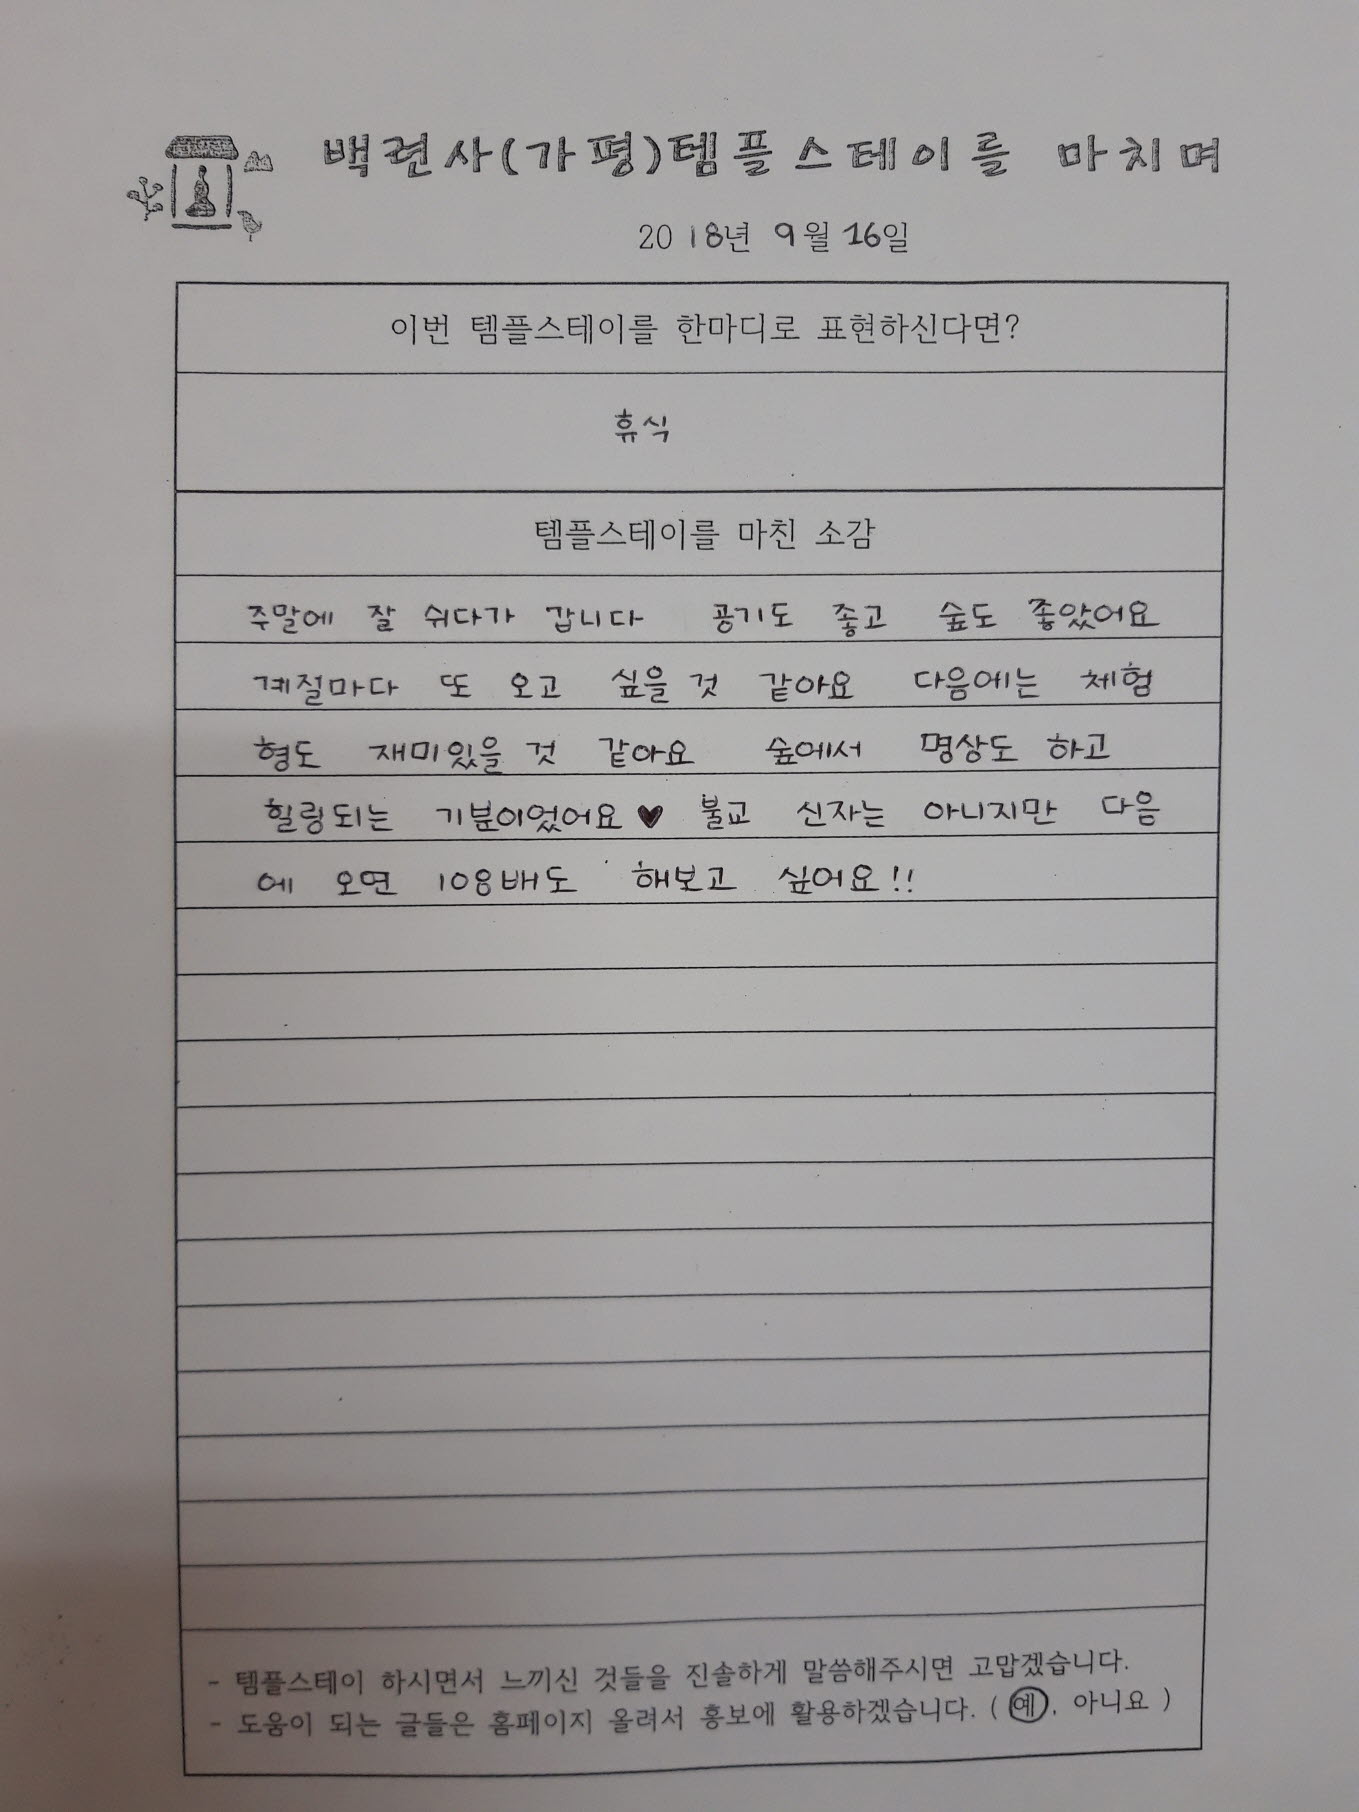 백련사(가평)템플스테이를 마치며
2018년 9월 16일
이번 템플스테이를 한마디로 표현하신다면?
휴식
템플스테이를 마친 소감
주말에 잘 쉬다가 갑니다 공기도 좋고 숲도 좋았어요
계절마다 또 오고 싶을 것 같아요 다음에는 체험
형도 재미있을 것 같아요 숲에서 명상도 하고
힐링되는 기분이었어요♥ 불교 신자는 아니지만 다음
에 오면 108배도 해보고 싶어요!!
- 템플스테이 하시면서 느끼신 것들을 진솔하게 말씀해주시면 고맙겠습니다.
- 도움이 되는 글들은 홈페이지 올려서 홍보에 활용하겠습니다. ( 예, 아니요 )